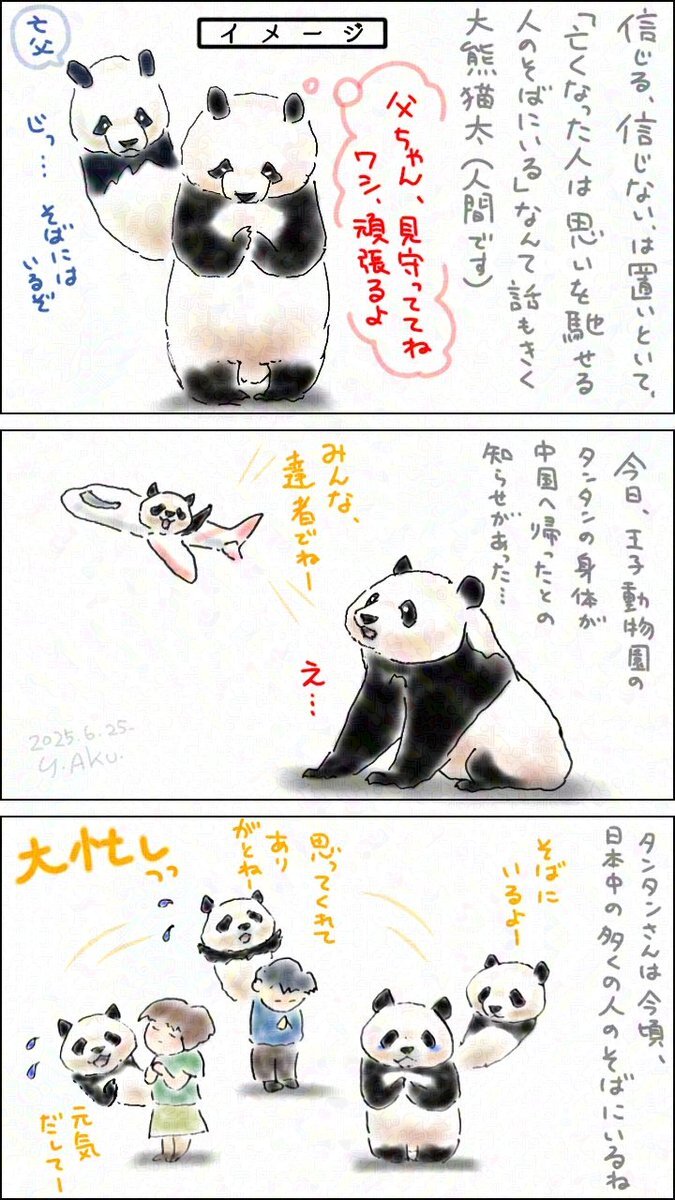 信じる、信じない、は置いといて、
「亡くなった人は思いを馳せる
人のそばにいる」なんて話もきく
大熊猫太(人間です)
イメージ
父ちゃん、見守っててね
ワシ、頑張るよ
亡父
じっ…
そばには
いるぞ
今日、王子動物園の
タンタンの身体が
中国へ帰ったとの
知らせがあった…
みんな、
達者でねー
え…
2025.6.25.
Y.AKU.
タンタンさんは今頃、
日本中の多くの人のそばにいるね
そばに
いるよー
思ってくれて
あり
がとねー
大忙しっっ
元気
だしてー